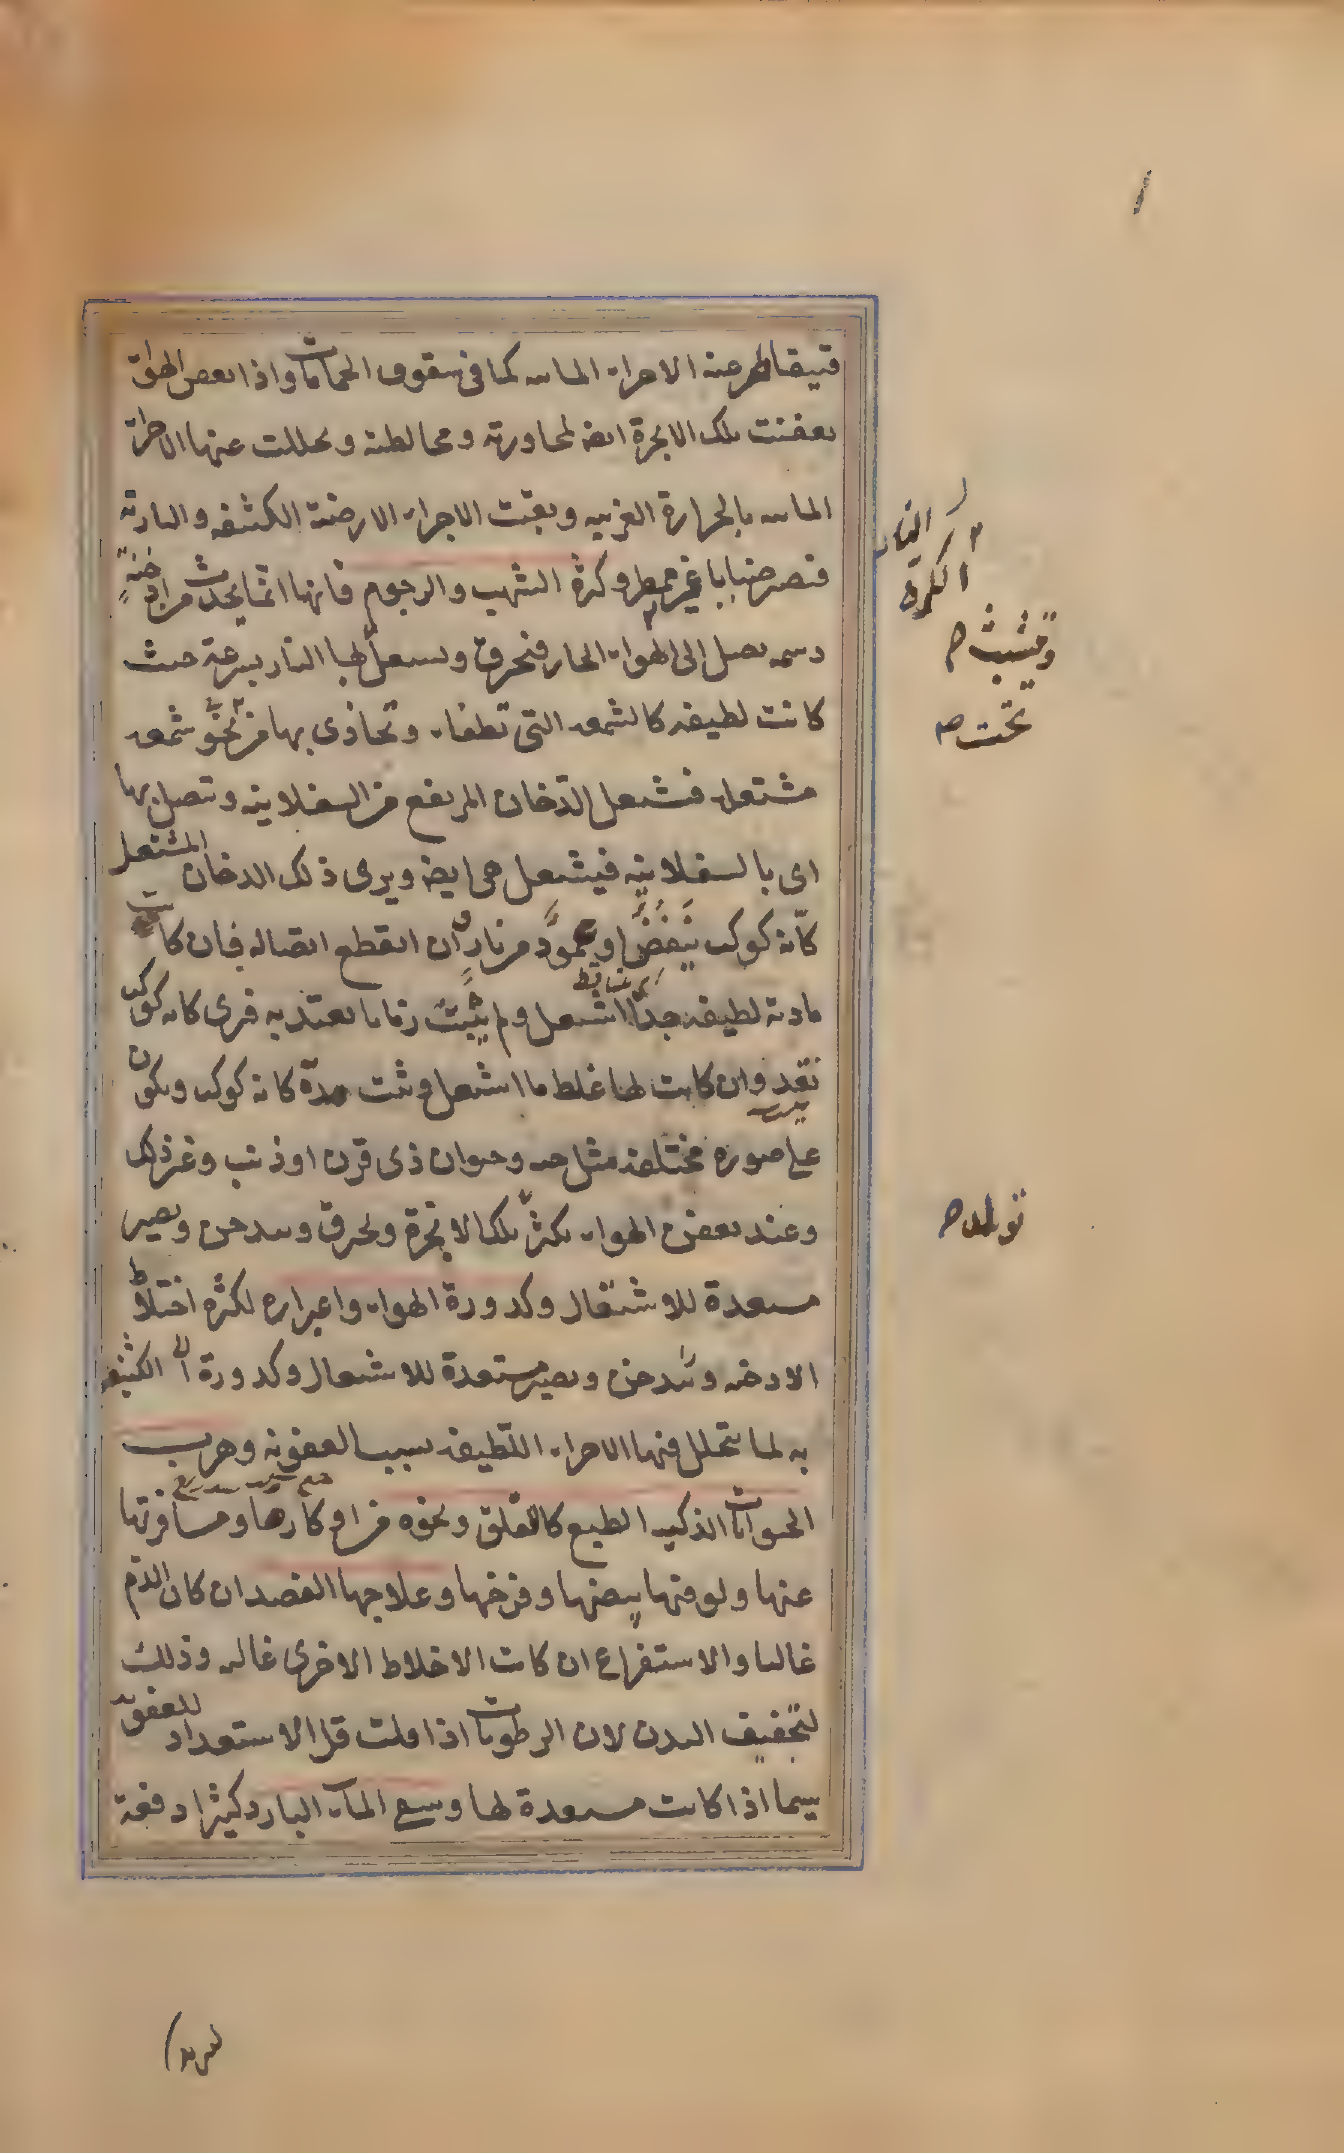 فتيقاطر عنه الاجزاء المائيه كما فى سقوف الحمامات واذا تعفن الهواء
تعفنت تلك الابخرة ايضا لمجاورته ومخالطته وتحللت عنها الاجزاء
المائيه بالحرارة الغريبه وبقيت الاجزاء الارضية الكثيفه والباردة
فتصير ضبابا غير ممطر وكثرة الشهب والرجوم فانها انما يحدث من ادخنةٍ
دسمه تصل الى الهواء الحار فتحرق ويشعل لها النار بسرعة حيث
كانت لطيفه كالشمعه التى تطفاء وتحاذى بها من تحتٍ شمعه
مشتعله فتشعل الدخان المرتفع من السفلانيه وتتصل بها
اى بالسفلانيه فيشتعل هى ايضا ويرى ذلك الدخان المشتعل
كانّه كوكب ينقضّ او عمودٌ من نار وان انقطع اتصاله فان كانت
مادته لطيفه جداً اشتعل ولم يثبت زمانا يعتد به فترى كانه كوكب
نقد وان كانت لها غلظ ما اشتعل وثبت مدة كانه كوكب ويكون
على صوره مختلفه مثل حيه وحيوان ذى قرن او ذنب وغير ذلك
وعند تعفن الهواء يكثر تلك الابخرة وتحرق ويتدخن ويصير
مستعدة للاشتعال وكدورة الهواء واغبراره لكثرة اختلاط
الادخنه ويتدخن ويصير مستعدة للاشتعال وكدورة الكثيفه
به لما يتحلل فيها الاجزاء اللّطيفه بسبب العفونه وهرب
الحيوانات الذكيه الطبع كاللقلق ونحوه من اوكارها ومسافرتها
عنها ولو فيها بيضها وفرخها وعلاجها الفصد ان كان الدّم
غالبا والاستفراغ ان كانت الاخلاط الاخرى غالبه وذلك
لتجفيف البدن لان الرطوبات اذا قلت قل الاستعداد للعفونة
سيما اذا كانت مستعدة لها وسع الماء البارد كثيرا دفعة
النار
الكرة
تحت صح
تولده صح